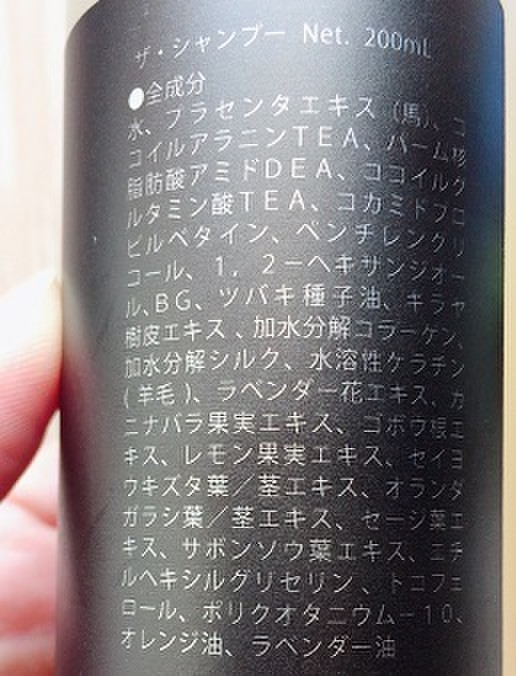 ザ・シャンプー Net. 200mL
●全成分
水、プラセンタエキス(馬)、コ
コイルアラニンTEA、パーム核
脂肪酸アミドDEA、ココイルグ
ルタミン酸TEA、コカミドプロ
ピルベタイン、ペンチレングリ
コール、1,2-ヘキサンジオー
ル、BG、ツバキ種子油、キラヤ
樹皮エキス、加水分解コラーゲン、
加水分解シルク、水溶性ケラチン
(羊毛)、ラベンダー花エキス、カ
ニナバラ果実エキス、ゴボウ根エ
キス、レモン果実エキス、セイヨ
ウキズタ葉/茎エキス、オランダ
ガラシ葉/茎エキス、セージ葉エ
キス、サボンソウ葉エキス、エチ
ルヘキシルグリセリン、トコフェ
ロール、ポリクオタニウム-10、
オレンジ油、ラベンダー油